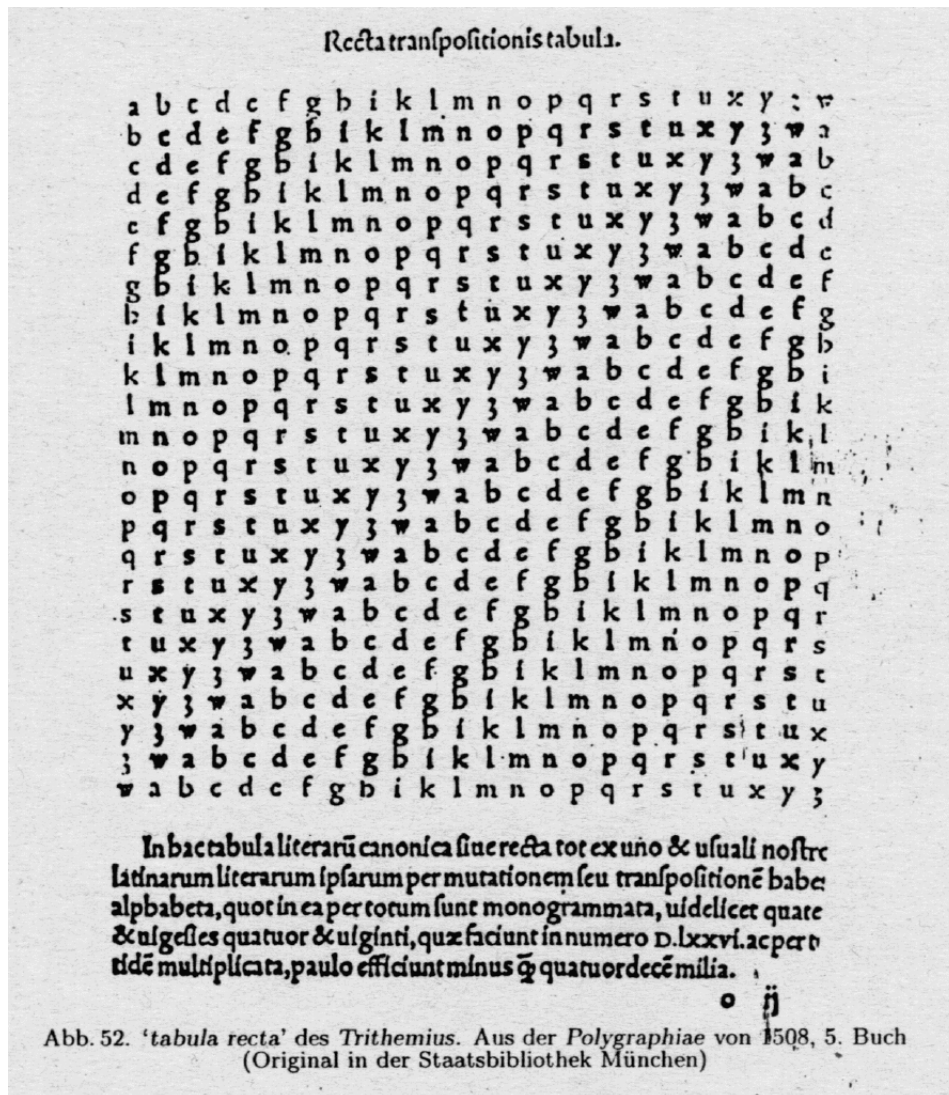 Recta tranſpoſitionis tabula.
a b c d e f g h i k l m n o p q r s t u x y z w
b c d e f g h i k l m n o p q r s t u x y z w a
c d e f g h i k l m n o p q r s t u x y z w a b
d e f g h i k l m n o p q r s t u x y z w a b c
e f g h i k l m n o p q r s t u x y z w a b c d
f g h i k l m n o p q r s t u x y z w a b c d e
g h i k l m n o p q r s t u x y z w a b c d e f
h i k l m n o p q r s t u x y z w a b c d e f g
i k l m n o p q r s t u x y z w a b c d e f g h
k l m n o p q r s t u x y z w a b c d e f g h i
l m n o p q r s t u x y z w a b c d e f g h i k
m n o p q r s t u x y z w a b c d e f g h i k l
n o p q r s t u x y z w a b c d e f g h i k l m
o p q r s t u x y z w a b c d e f g h i k l m n
p q r s t u x y z w a b c d e f g h i k l m n o
q r s t u x y z w a b c d e f g h i k l m n o p
r s t u x y z w a b c d e f g h i k l m n o p q
s t u x y z w a b c d e f g h i k l m n o p q r
t u x y z w a b c d e f g h i k l m n o p q r s
u x y z w a b c d e f g h i k l m n o p q r s t
x y z w a b c d e f g h i k l m n o p q r s t u
y z w a b c d e f g h i k l m n o p q r s t u x
z w a b c d e f g h i k l m n o p q r s t u x y
w a b c d e f g h i k l m n o p q r s t u x y z
In hac tabula literarū canonica ſiue recta tot ex uno & uſuali noſtre
latinarum literarum ipſarum per mutationem ſeu tranſpoſitionē
alphabeta, quot in ea per totum ſunt monogrammata, uidelicet quate
& uigeſies quatuor & uiginti, quæ faciunt in numero D.lxxvi. ac per
tidē multiplicata, paulo efficiunt minus q̃ quatuordecē milia.
o ij
Abb. 52. ‘tabula recta’ des Trithemius. Aus der Polygraphiae von 1508, 5. Buch
(Original in der Staatsbibliothek München)